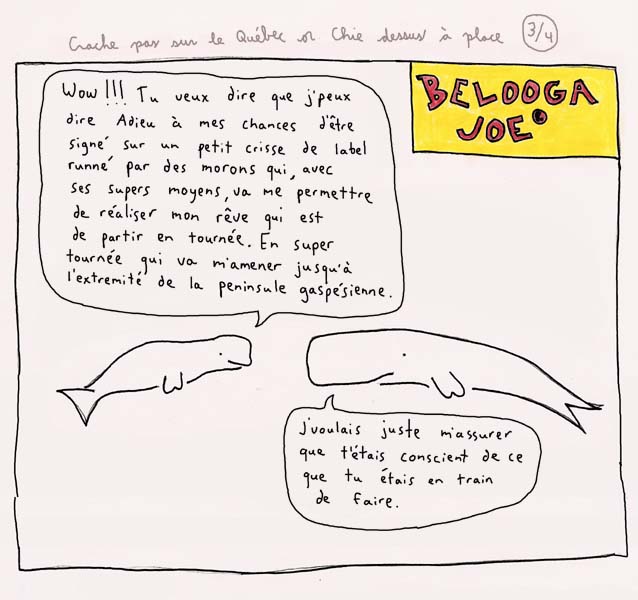 Crache pas sur le Québec or Chie dessus à place 3/4
BELOOGA
JOE
Wow!!! Tu veux dire que j'peux
dire Adieu à mes chances d'être
signé sur un petit crisse de label
runné par des morons qui, avec
ses supers moyens, va me permettre
de réaliser mon rêve qui est
de partir en tournée. En super
tournée qui va m'amener jusqu'à
l'extremité de la peninsule gaspésienne.
j'voulais juste m'assurer
que t'étais conscient de ce
que tu étais en train
de faire.